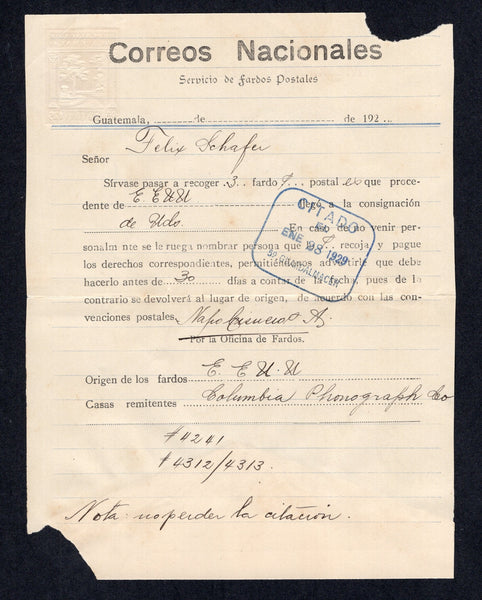 Correos Nacionales
Servicio de Fardos Postales
Guatemala, de de 192
Felix Schafer
Señor
Sírvase pasar a recoger 3 fardo s postal es que proce-
dente de E. E U U llegó a la consignación
de Udo. En caso de no venir per-
sonalm nte se le ruega nombrar persona que l recoja y pague
los derechos correspondientes, permitiéndome advertirle que debe
hacerlo antes de 30 días a contar de la fecha, pues de lo
contrario se devolverá al lugar de origen, de acuerdo con las con-
venciones postales.
CITADO
EL
ENE 08 1929
5º GUARDALMACEN
Por la Oficina de Fardos.
Origen de los fardos E. E U. U
Casas remitentes Columbia Phonograph Co
#4241
#4312/4313.
Nota: no perder la citación.